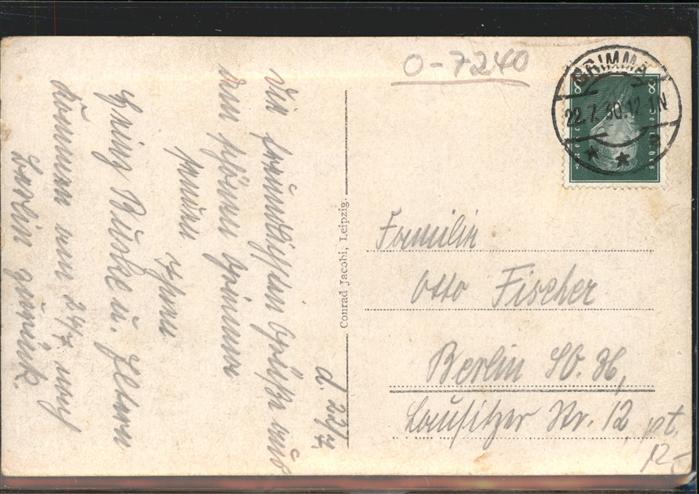 O-7240
GRIMMA
22.7.30.12-1N
d. 22/7
Die freundlichsten Grüße aus
dem schönen Grimma
senden Ihnen
Heinz Ruske u. Eltern
kommen am 24/7 nach
Berlin zurück
Conrad Jacobi, Leipzig.
Familie
Otto Fischer
Berlin SO. 36,
Lausitzer Str. 12, pt.
12.-